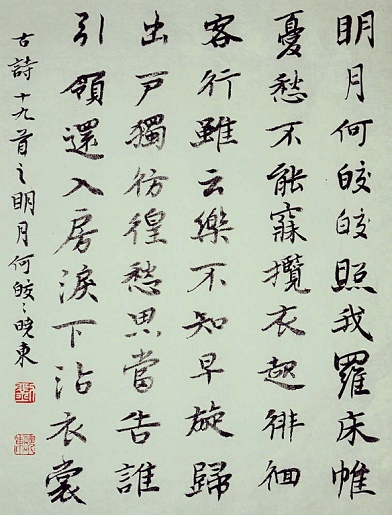 明月何皎皎照我羅床帷
憂愁不能寐攬衣起徘徊
客行雖云樂不知早旋歸
出户獨彷徨愁思當告誰
引領還入房淚下沾衣裳
古詩十九首之明月何皎々曉東